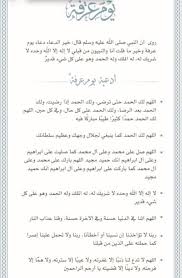 يوم عرفة
روى ان النبي صلى الله عليه وسلم قال: خير الدعاء دعاء يوم
عرفة وخير ما قلت أنا والنبيون من قبلي لا إله إلا الله وحده لا
شريك له، له الملك وله الحمد وهو على كل شيء قدير
أدعية يوم عرفة
اللهم لك الحمد حتى ترضى، ولك الحمد إذا رضيت، ولك
الحمد بعد الرضا، ولك الحمد على كل حال، اللهم لك
الحمد حمداً كثيراً طيباً مباركاً فيه
اللهم لك الحمد كما ينبغي لجلال وجهك وعظيم سلطانك.
اللهم صل على محمد وعلى آل محمد كما صليت على ابراهيم
وعلى آل ابراهيم انك حميد مجيد اللهم بارك على محمد
وعلى آل محمد كما باركت على ابراهيم وعلى آل ابراهيم انك
حميد مجيد.
لا إله إلا الله وحده لا شريك له، له الملك وله الحمد وهو على كل
شيء قدير.
اللهم آتنا في الدنيا حسنة وفي الآخرة حسنة، وقنا عذاب النار
ربنا لا تؤاخذنا إن نسينا أو أخطأنا، ربنا ولا تحمل علينا إصراً كما
حملته على الذين من قبلنا.